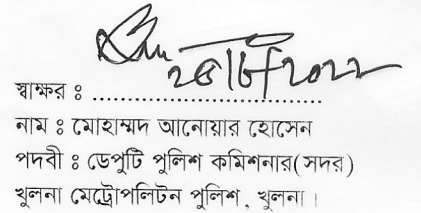 স্বাক্ষর ঃ ........................................
নাম ঃ মোহাম্মদ আনোয়ার হোসেন
পদবী ঃ ডেপুটি পুলিশ কমিশনার(সদর)
খুলনা মেট্রোপলিটন পুলিশ, খুলনা।